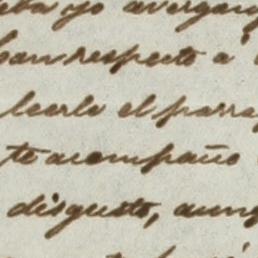 yo avergon
respecto á
leerle el parra
te acompaño
disgusto, aunq